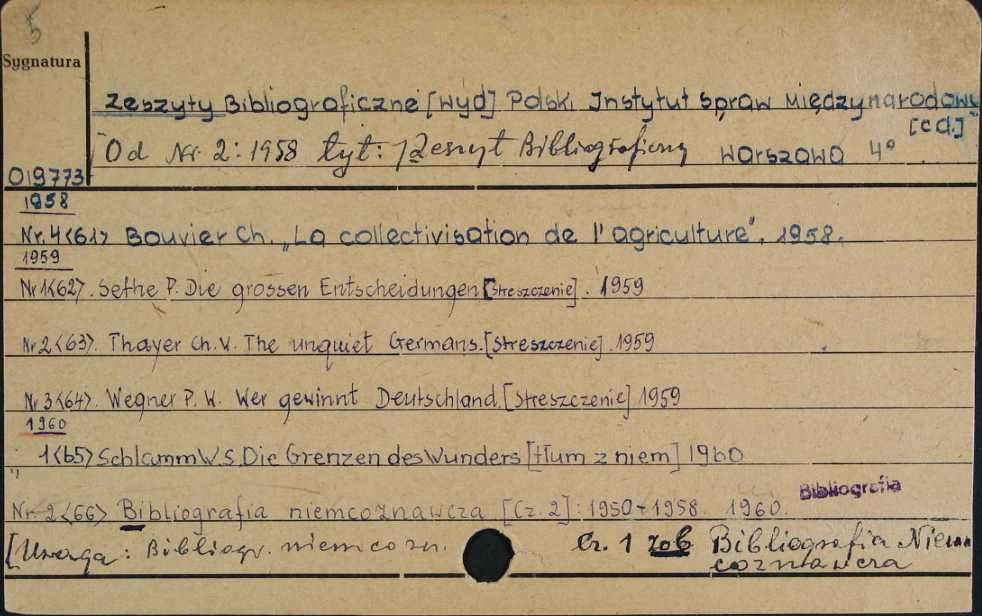 5
Sygnatura
Zeszyty Bibliograficzne [wyd] Polsk. Instytut Spraw Międzynarodowy
[cd.]
Od Nr. 2: 1958 tyt: Zeszyt Bibliograficzny Warszawa 4°
019773
1958
Nr. 4<61> Bouvier Ch. „La collectivisation de l'agriculture". 1958.
1959
Nr 1<62>. Sethe P. Die grossen Entscheidungen [streszczenie]. 1959
Nr 2<63>. Thayer Ch. W. The unquiet Germans. [streszczenie]. 1959
Nr 3<64>. Wegner P. W. Wer gewinnt Deutschland. [streszczenie] 1959
1960
„ 1<65> Schlamm W. S. Die Grenzen des Wunders [tłum z niem] 1960
Bibliografia
Nr. 2<66> Bibliografia niemcoznawcza [Cz. 2]: 1950-1958. 1960.
[Uwaga: Bibliogr. niemcozn. Cz. 1 zob Bibliografia Niem
coznawcza